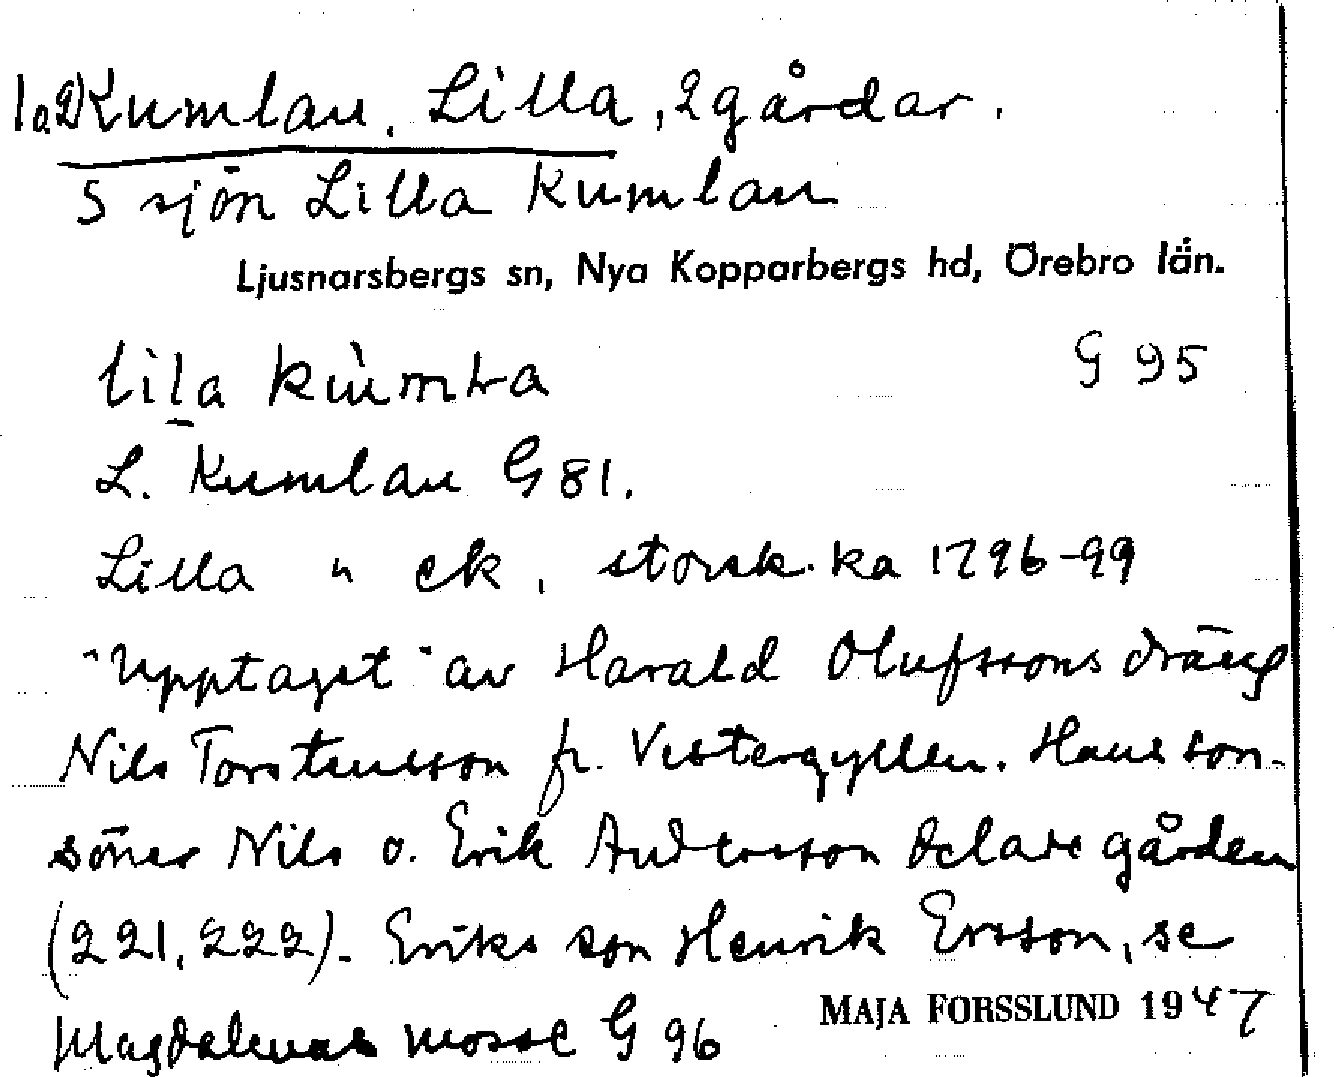 1a2) Kumlan, Lilla, 2 gårdar.
S sjön Lilla Kumlan
Ljusnarsbergs sn, Nya Kopparbergs hd, Örebro län.
lila kùmła G 95
L. Kumlan G 81.
Lilla " ek, storsk. ka 1796-99
"Upptaget" av Harald Olufssons dräng
Nils Torstensson fr. Vestergyllen. Hans son-
söner Nils o. Erik Andersson delade gården
(221, 222). Eriks son Henrik Ersson, se
Magdalenas mosse G 96
MAJA FORSSLUND 1947